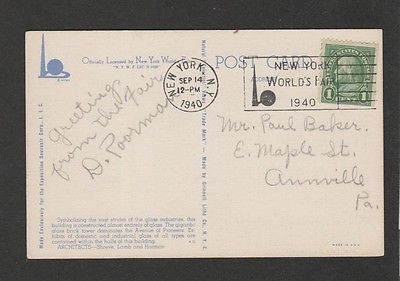 Officially Licensed by New York World's
"N. Y. W. F. LIC.
POST CARD
ADDRESS
NEW YORK, N.Y.
SEP 14
12-PM
1940
NEW YORK
WORLD'S FAIR
1940
1
1
Greetings
from the fair
D. Poorman
Mr. Paul Baker.
E. Maple St.
Annville
Pa.
Made Exclusively for the Exposition Souvenir Corp., L. I. C.
Made by Grinnell Litho Co., N. Y. C.
Symbolizing the vast strides of the glass industries, this
building is constructed almost entirely of glass. The gigantic
glass brick tower dominates the Avenue of Pioneers. Ex-
hibits of domestic and industrial glass of all types are
contained within the halls of this building.
ARCHITECTS—Shreve, Lamb and Harmon
MADE IN U.S.A.